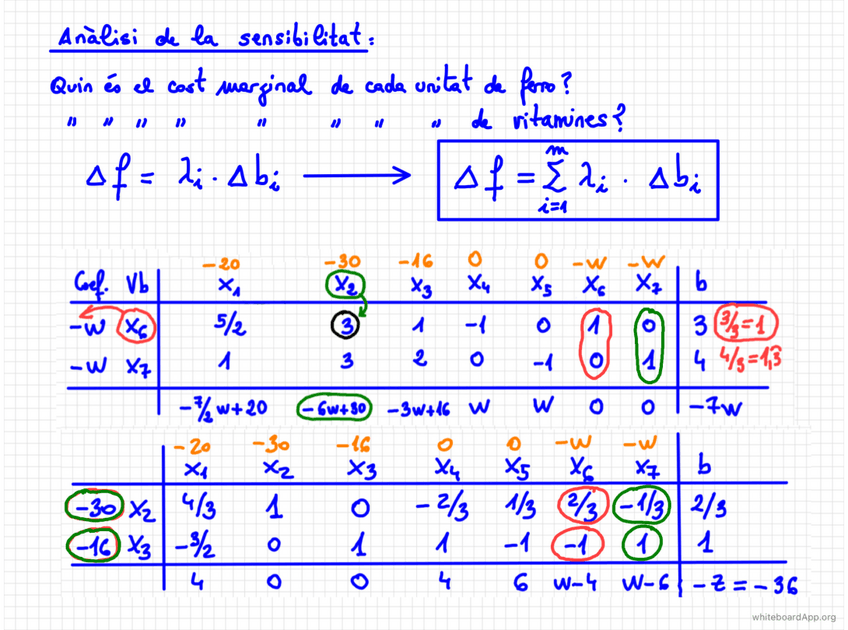 Anàlisi de la sensibilitat:
Quin és el cost marginal de cada unitat de ferro?
" " " " " " " " de vitamines?
Δf = λi · Δbi → Δf = Σ_{i=1}^{m} λi · Δbi
-20 -30 -16 0 0 -W -W
Coef. Vb x1 x2 x3 x4 x5 x6 x7 b
-W x6 5/2 3 1 -1 0 1 0 3 3/3=1
-W x7 1 3 2 0 -1 0 1 4 4/3=1,3̂
-7/2W+20 -6W+30 -3W+16 W W 0 0 -7W
-20 -30 -16 0 0 -W -W
x1 x2 x3 x4 x5 x6 x7 b
-30 x2 4/3 1 0 -2/3 1/3 2/3 -1/3 2/3
-16 x3 -3/2 0 1 1 -1 -1 1 1
4 0 0 4 6 W-4 W-6 -Z = -36
whiteboardApp.org